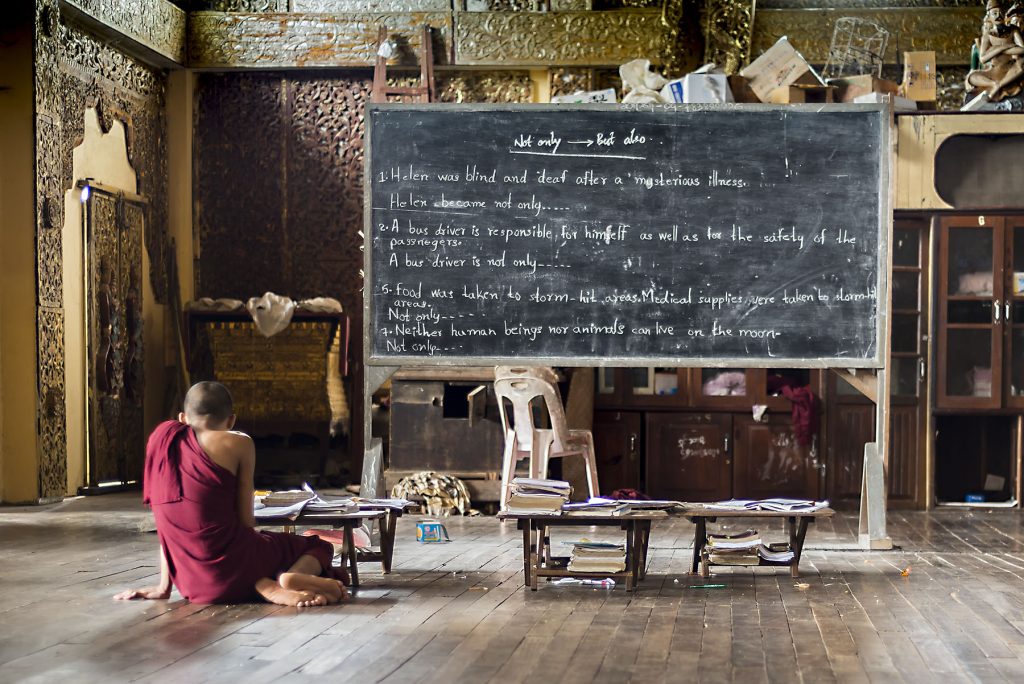 Not only → But also
1. Helen was blind and deaf after a mysterious illness.
Helen became not only.....
2. A bus driver is responsible for himself as well as for the safety of the
passnegers.
A bus driver is not only.....
5. Food was taken to storm-hit areas. Medical supplies were taken to storm-hit
areas.
Not only.....
7. Neither human beings nor animals can live on the moon.
Not only....